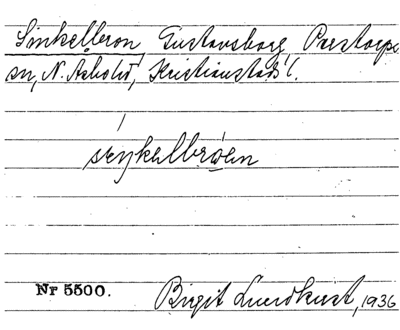 Sinkelbron, Gustavsborg, Perstorps
sn, N. Åsbohd, Kristianstads l.
seŋkelbrøen
Nr 5500.
Birgit Lundkvist, 1936